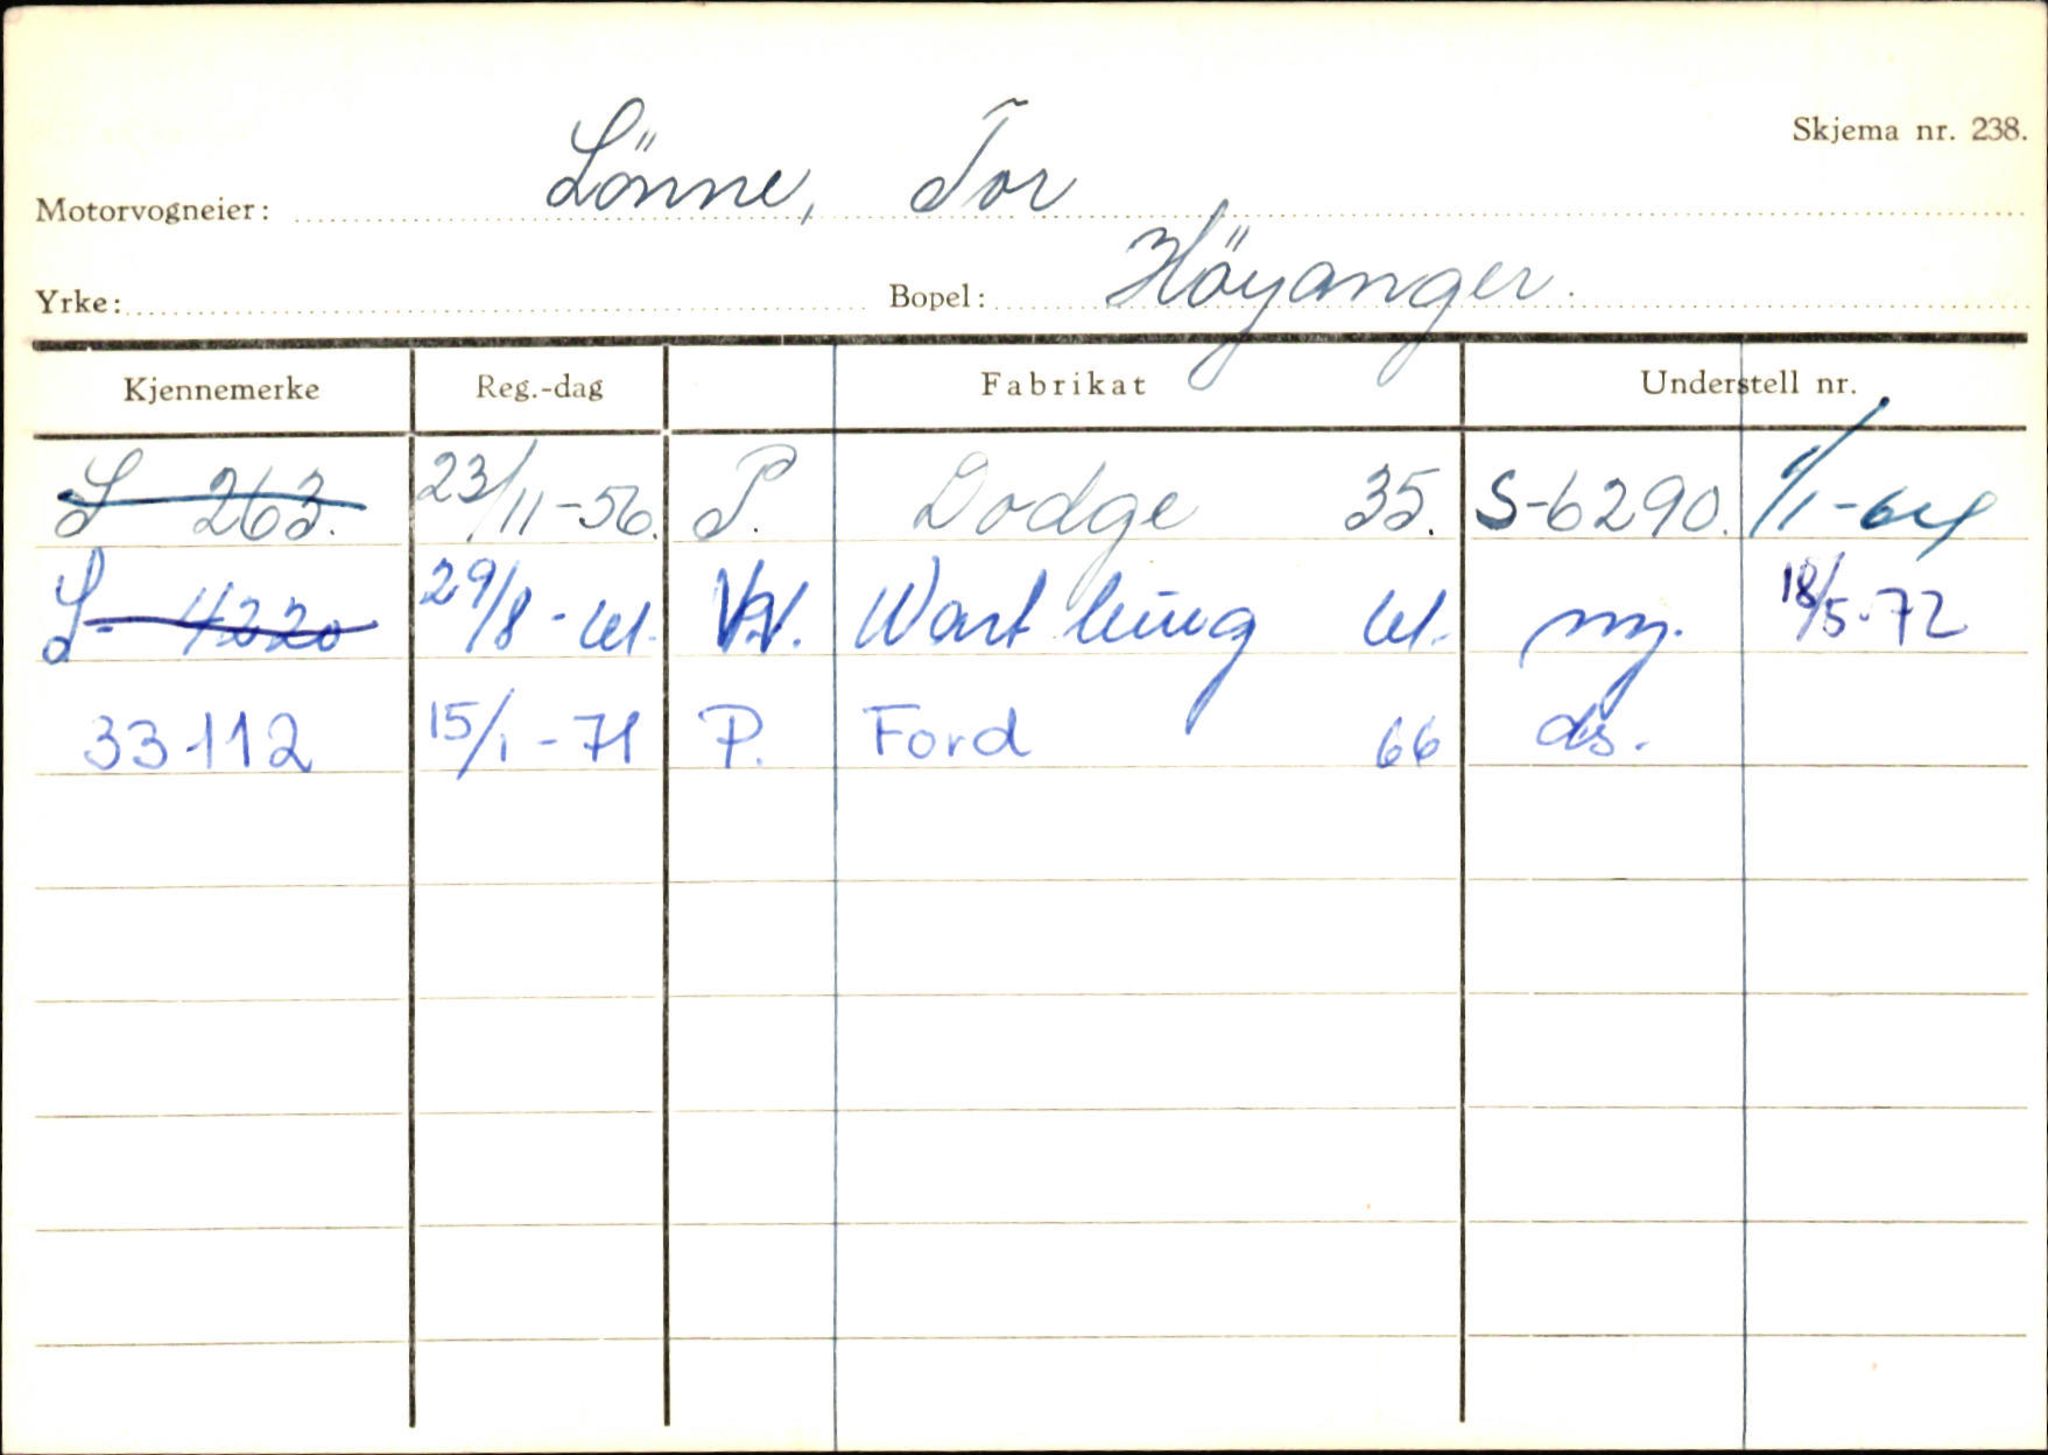 Skjema nr. 238.
Motorvogneier: Lönne, Tor
Yrke: Bopel: Höyanger.
Kjennemerke Reg.-dag Fabrikat Understell nr.
S 263. 23/11-56. P. Dodge 35. S-6290. 1/1-64
S- 4220 29/8-61. Wartburg 61. ny. 18/5-72
33-112 15/1-71 P. Ford 66 ds.